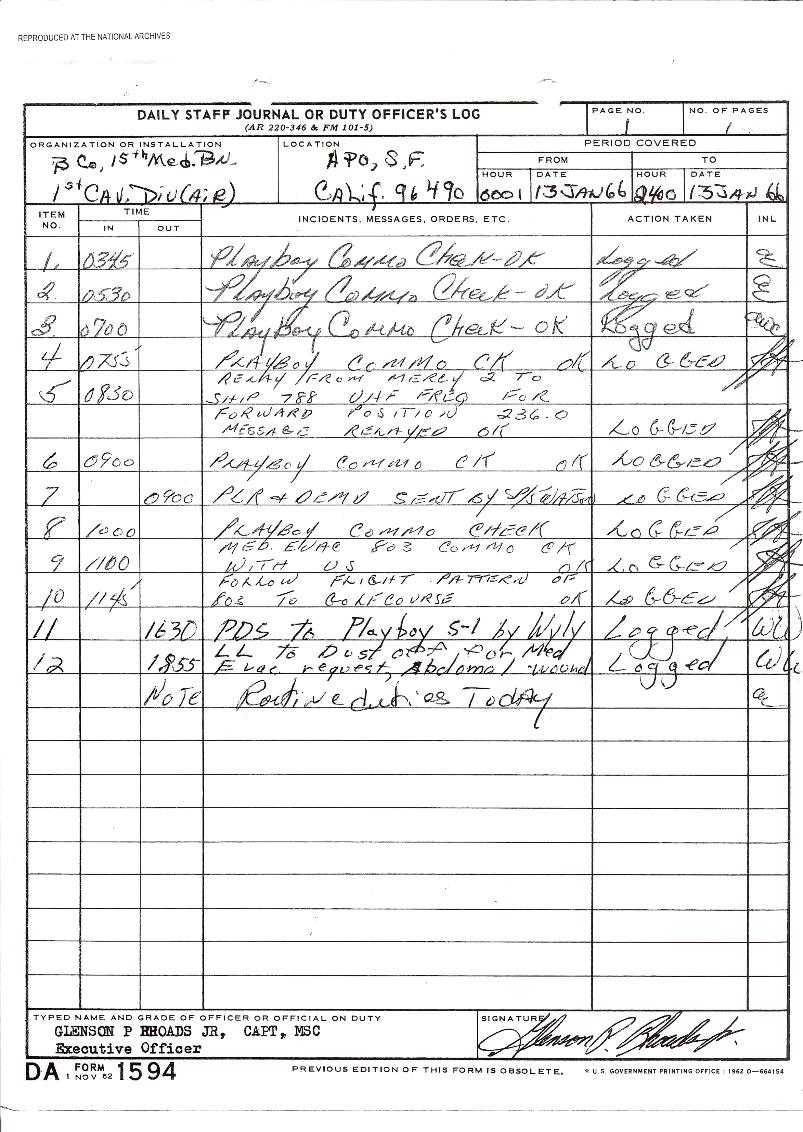 REPRODUCED AT THE NATIONAL ARCHIVES
DAILY STAFF JOURNAL OR DUTY OFFICER'S LOG
(AR 220-346 & FM 101-5)
PAGE NO.
1
NO. OF PAGES
1
ORGANIZATION OR INSTALLATION
B Co, 15th Med. BN.
1st CAV. DIV (AIR)
LOCATION
APO, S.F.
CALIF. 96490
PERIOD COVERED
FROM TO
HOUR DATE HOUR DATE
0001 13 JAN 66 2400 13 JAN 66
ITEM NO. TIME IN OUT INCIDENTS, MESSAGES, ORDERS, ETC. ACTION TAKEN INL
1. 0345 Playboy Commo Check-OK Logged
2. 0530 Playboy Commo Check-OK Logged
3. 0700 Playboy Commo Check-OK Logged
4 0755 PLAYBOY COMMO CK OK LOGGED
5 0830 RELAY/FROM MERCY 2 TO
SHIP 788 UHF FREQ FOR
FORWARD POSITION 236.0
MESSAGE RELAYED OK LOGGED
6 0900 PLAYBOY COMMO CK OK LOGGED
7 0900 PLR & DEMO SENT BY LOGGED
8 1000 PLAYBOY COMMO CHECK LOGGED
9 1100 MED. EVAC 803 COMMO CK
WITH US OK LOGGED
10 1145 FOLLOW FLIGHT PATTERN OF
803 TO GOLFCOURSE OK LOGGED
11 1630 PDS to Playboy S-1 by Wyly Logged
12 1855 LL to Dust off for Med
Evac request, Abdomal wound Logged
NOTE Routine duties Today
TYPED NAME AND GRADE OF OFFICER OR OFFICIAL ON DUTY
GLENSON P RHOADS JR, CAPT, MSC
Executive Officer
SIGNATURE
Glenson P. Rhoads Jr.
DA FORM 1 NOV 62 1594
PREVIOUS EDITION OF THIS FORM IS OBSOLETE.
* U.S. GOVERNMENT PRINTING OFFICE : 1962 O—664154